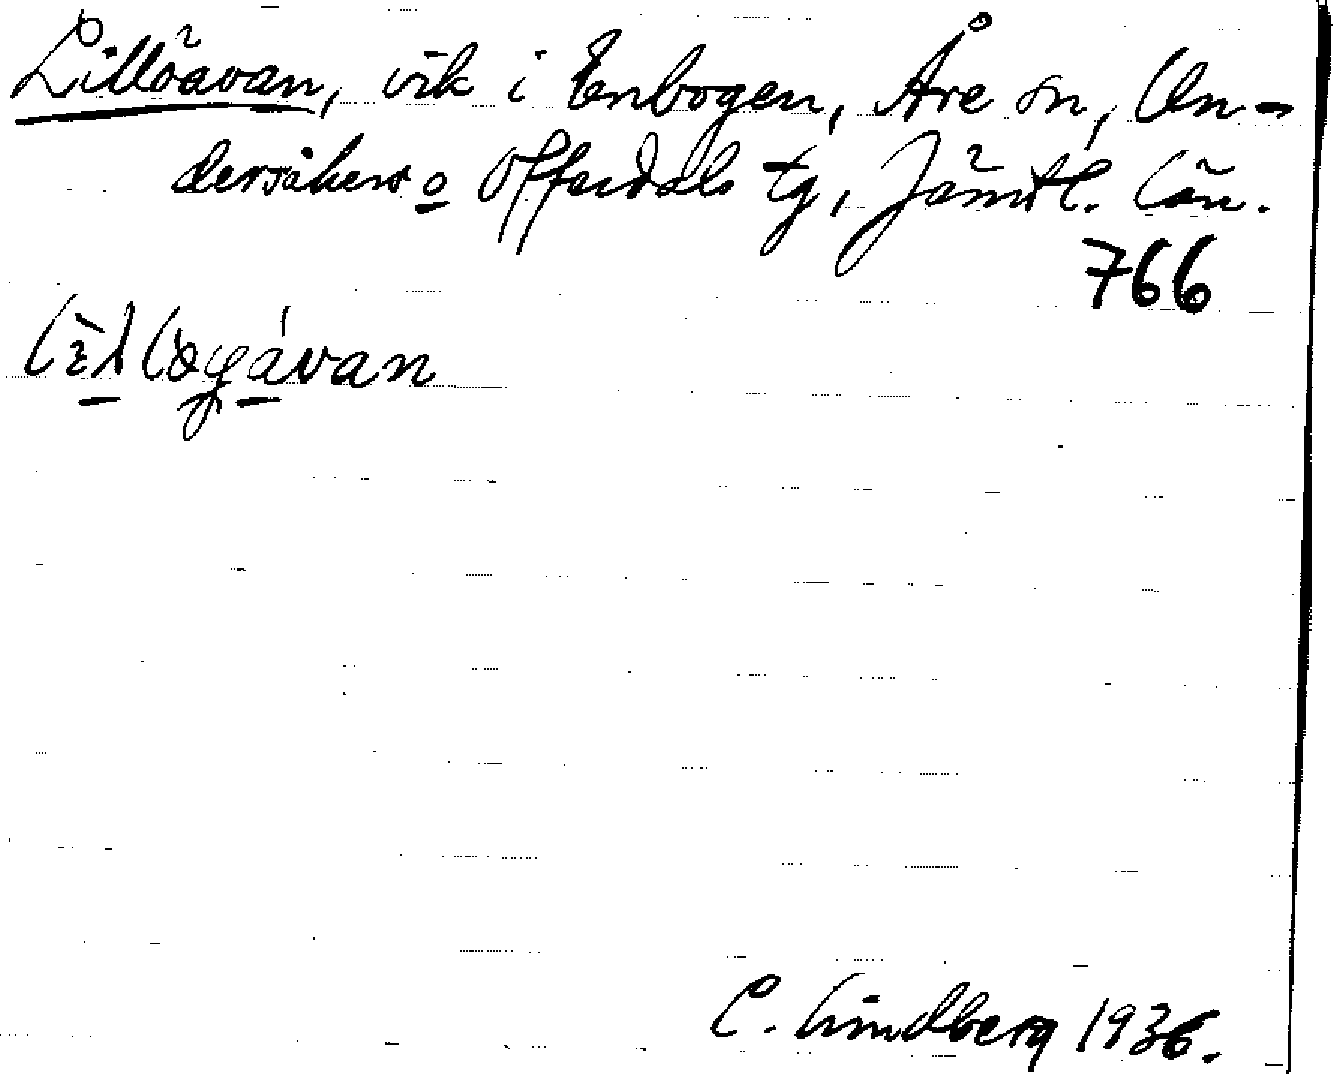 Lillöavan, vik i Enbogen, Åre sn, Un-
dersåkers o Offerdals tg, Jämtl. län.
766
C. Lindberg 1936.